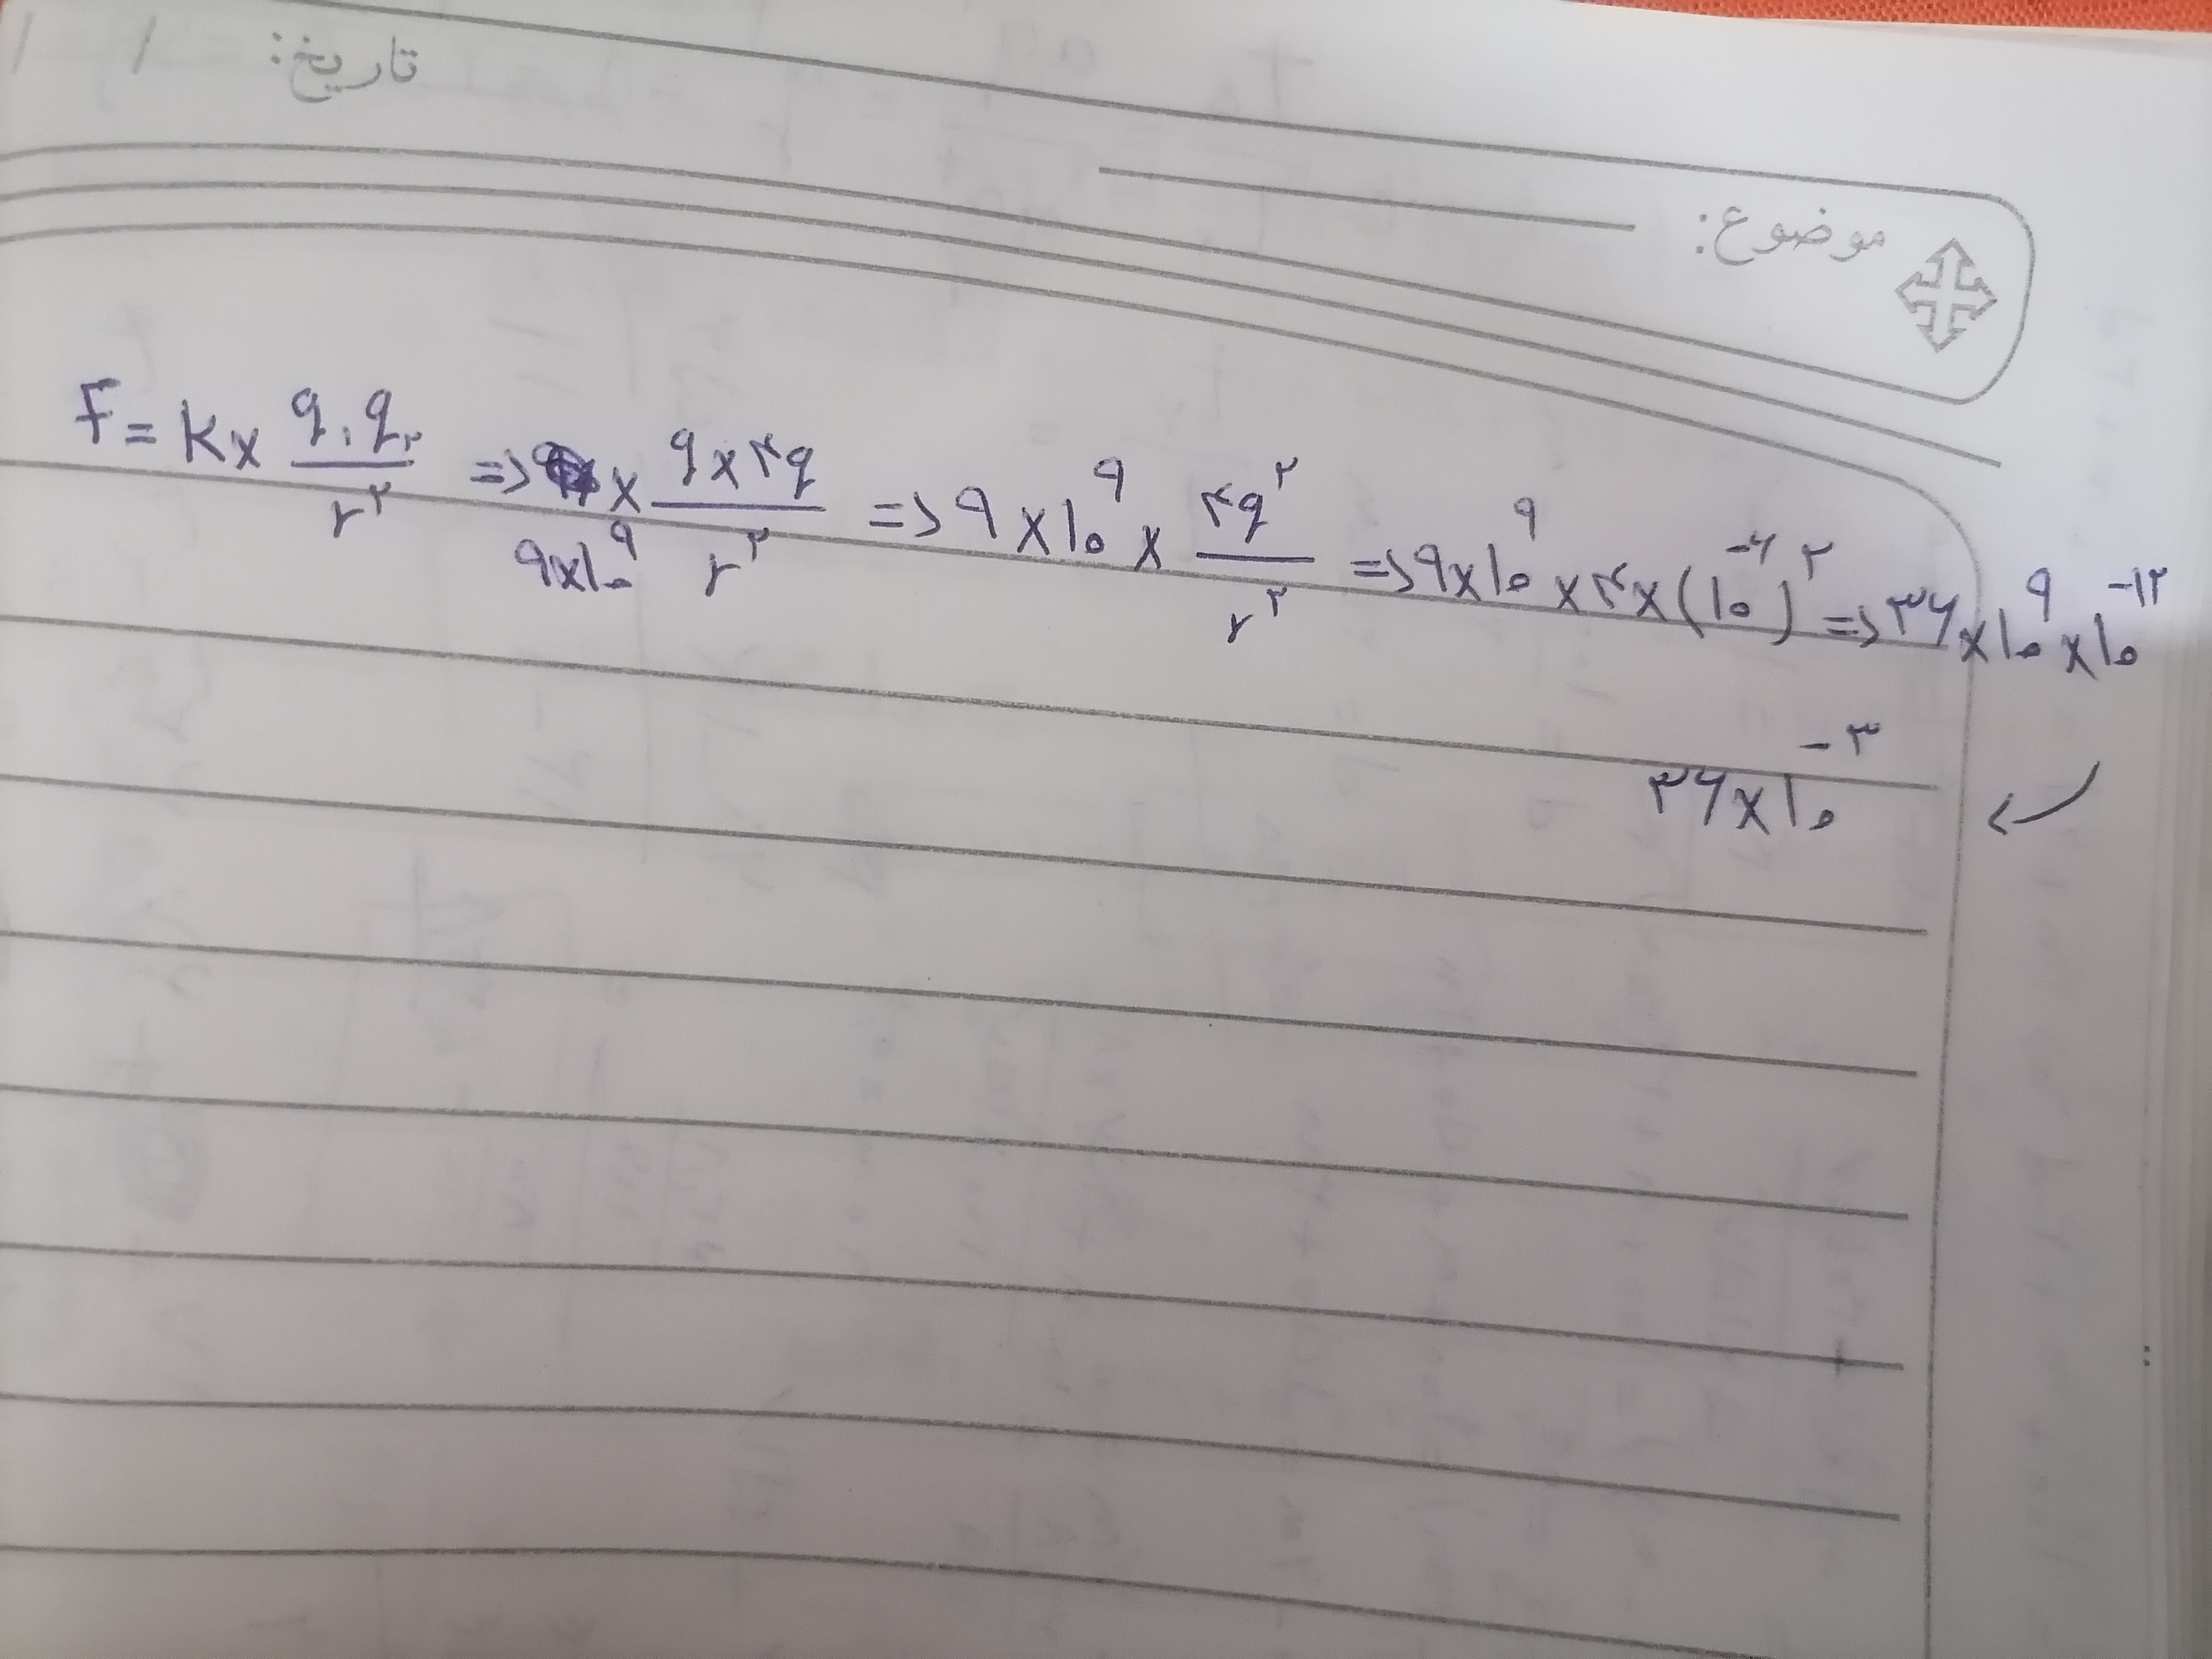 تاریخ: / /
موضوع:
F = K × q₁q₂ / r² => ۹×۱۰^۹ × q×۴q / r² => ۹×۱۰^۹ × ۴q^۲ / r^۲ => ۹×۱۰^۹ × ۴×(۱۰^-۶)^۲ => ۳۶×۱۰^۹×۱۰^-۱۲
۳۶×۱۰^-۳